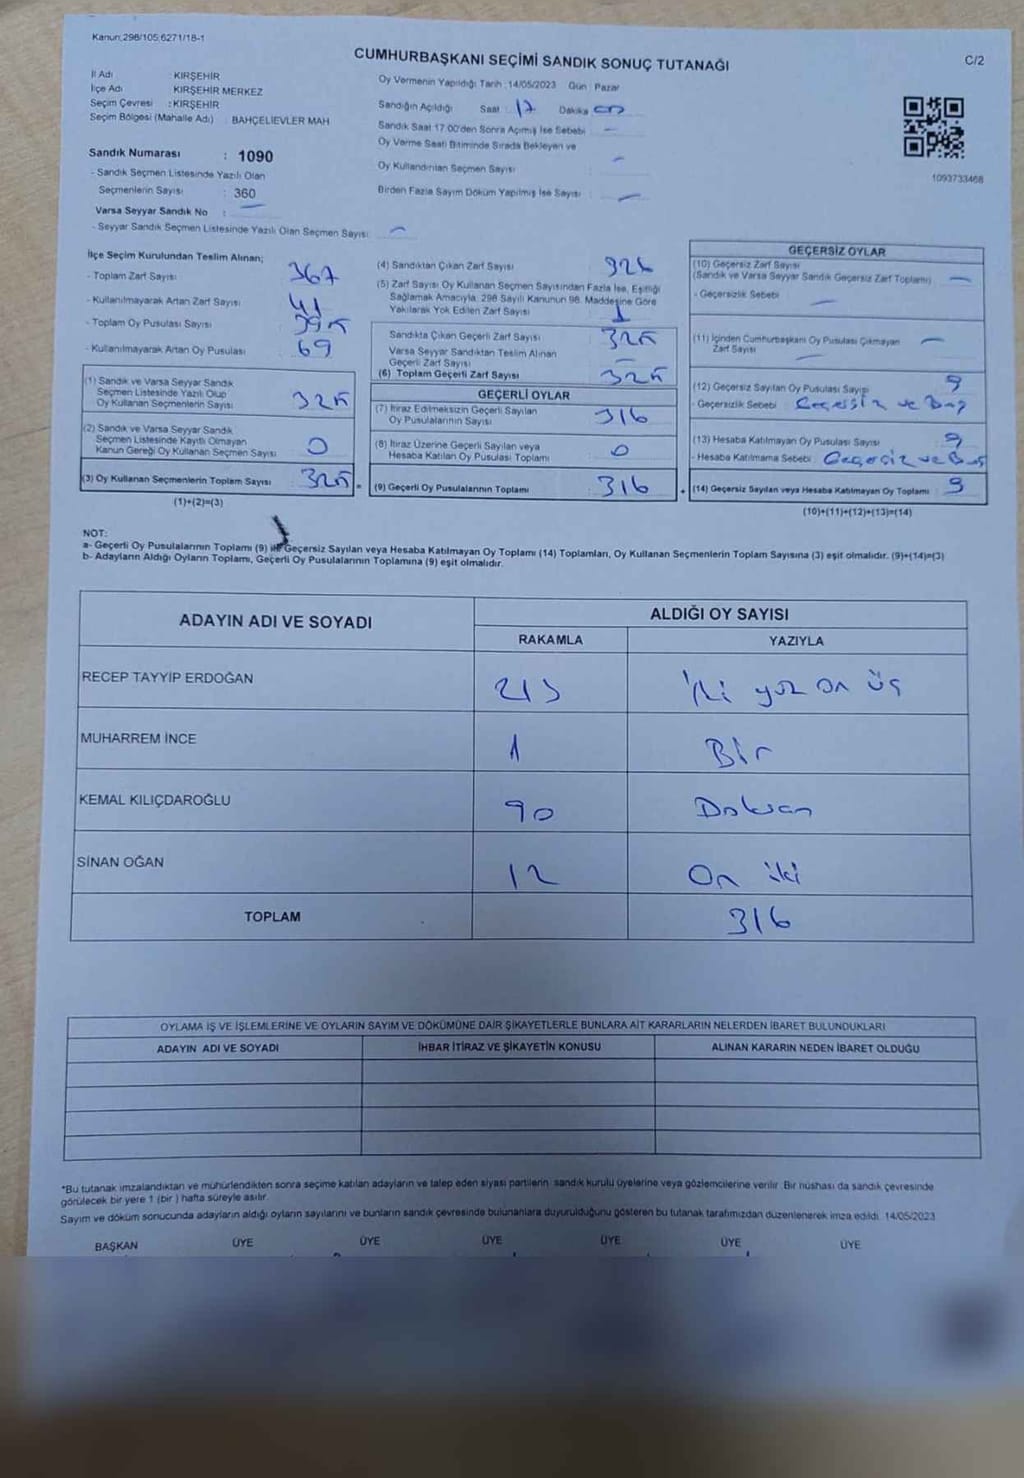 Kanun:298/105,6271/18-1
CUMHURBAŞKANI SEÇİMİ SANDIK SONUÇ TUTANAĞI
C/2
İl Adı : KIRŞEHİR
İlçe Adı : KIRŞEHİR MERKEZ
Seçim Çevresi : KIRŞEHİR
Seçim Bölgesi (Mahalle Adı) : BAHÇELİEVLER MAH
Sandık Numarası : 1090
- Sandık Seçmen Listesinde Yazılı Olan
Seçmenlerin Sayısı : 360
Varsa Seyyar Sandık No : —
- Seyyar Sandık Seçmen Listesinde Yazılı Olan Seçmen Sayısı: —
Oy Vermenin Yapıldığı Tarih : 14/05/2023 Gün : Pazar
Sandığın Açıldığı Saat : 17 Dakika
Sandık Saat 17:00'den Sonra Açılmış İse Sebebi : —
Oy Verme Saati Bitiminde Sırada Bekleyen ve
Oy Kullandırılan Seçmen Sayısı : —
Birden Fazla Sayım Döküm Yapılmış İse Sayısı : —
1093733468
İlçe Seçim Kurulundan Teslim Alınan;
- Toplam Zarf Sayısı : 367
- Kullanılmayarak Artan Zarf Sayısı : 41
- Toplam Oy Pusulası Sayısı : 395
- Kullanılmayarak Artan Oy Pusulası : 69
(1) Sandık ve Varsa Seyyar Sandık
Seçmen Listesinde Yazılı Olup
Oy Kullanan Seçmenlerin Sayısı : 325
(2) Sandık ve Varsa Seyyar Sandık
Seçmen Listesinde Kayıtlı Olmayan
Kanun Gereği Oy Kullanan Seçmen Sayısı : 0
(3) Oy Kullanan Seçmenlerin Toplam Sayısı : 325
(1)+(2)=(3)
(4) Sandıktan Çıkan Zarf Sayısı : 326
(5) Zarf Sayısı Oy Kullanan Seçmen Sayısından Fazla İse, Eşitliği
Sağlamak Amacıyla, 298 Sayılı Kanunun 98. Maddesine Göre
Yakılarak Yok Edilen Zarf Sayısı : 1
Sandıkta Çıkan Geçerli Zarf Sayısı : 325
Varsa Seyyar Sandıktan Teslim Alınan
Geçerli Zarf Sayısı : —
(6) Toplam Geçerli Zarf Sayısı : 325
GEÇERLİ OYLAR
(7) İtiraz Edilmeksizin Geçerli Sayılan
Oy Pusulalarının Sayısı : 316
(8) İtiraz Üzerine Geçerli Sayılan veya
Hesaba Katılan Oy Pusulası Toplamı : 0
(9) Geçerli Oy Pusulalarının Toplamı : 316
GEÇERSİZ OYLAR
(10) Geçersiz Zarf Sayısı
(Sandık ve Varsa Seyyar Sandık Geçersiz Zarf Toplamı) : —
- Geçersizlik Sebebi : —
(11) İçinden Cumhurbaşkanı Oy Pusulası Çıkmayan
Zarf Sayısı : —
(12) Geçersiz Sayılan Oy Pusulası Sayısı : 9
- Geçersizlik Sebebi : Geçersiz ve Boş
(13) Hesaba Katılmayan Oy Pusulası Sayısı : 9
- Hesaba Katılmama Sebebi : Geçersiz ve Boş
(14) Geçersiz Sayılan veya Hesaba Katılmayan Oy Toplamı : 9
(10)+(11)+(12)+(13)=(14)
NOT:
a- Geçerli Oy Pusulalarının Toplamı (9) ile Geçersiz Sayılan veya Hesaba Katılmayan Oy Toplamı (14) Toplamları, Oy Kullanan Seçmenlerin Toplam Sayısına (3) eşit olmalıdır. (9)+(14)=(3)
b- Adayların Aldığı Oyların Toplamı, Geçerli Oy Pusulalarının Toplamına (9) eşit olmalıdır.
ADAYIN ADI VE SOYADI
ALDIĞI OY SAYISI
RAKAMLA YAZIYLA
RECEP TAYYİP ERDOĞAN 213 İki yüz on üç
MUHARREM İNCE 1 Bir
KEMAL KILIÇDAROĞLU 90 Doksan
SİNAN OĞAN 12 On iki
TOPLAM 316
OYLAMA İŞ VE İŞLEMLERİNE VE OYLARIN SAYIM VE DÖKÜMÜNE DAİR ŞİKAYETLERLE BUNLARA AİT KARARLARIN NELERDEN İBARET BULUNDUKLARI
ADAYIN ADI VE SOYADI İHBAR İTİRAZ VE ŞİKAYETİN KONUSU ALINAN KARARIN NEDEN İBARET OLDUĞU
*Bu tutanak imzalandıktan ve mühürlendikten sonra seçime katılan adayların ve talep eden siyasi partilerin sandık kurulu üyelerine veya gözlemcilerine verilir. Bir nüshası da sandık çevresinde
görülecek bir yere 1 (bir ) hafta süreyle asılır.
Sayım ve döküm sonucunda adayların aldığı oyların sayılarını ve bunların sandık çevresinde bulunanlara duyurulduğunu gösteren bu tutanak tarafımızdan düzenlenerek imza edildi. 14/05/2023
BAŞKAN ÜYE ÜYE ÜYE ÜYE ÜYE ÜYE